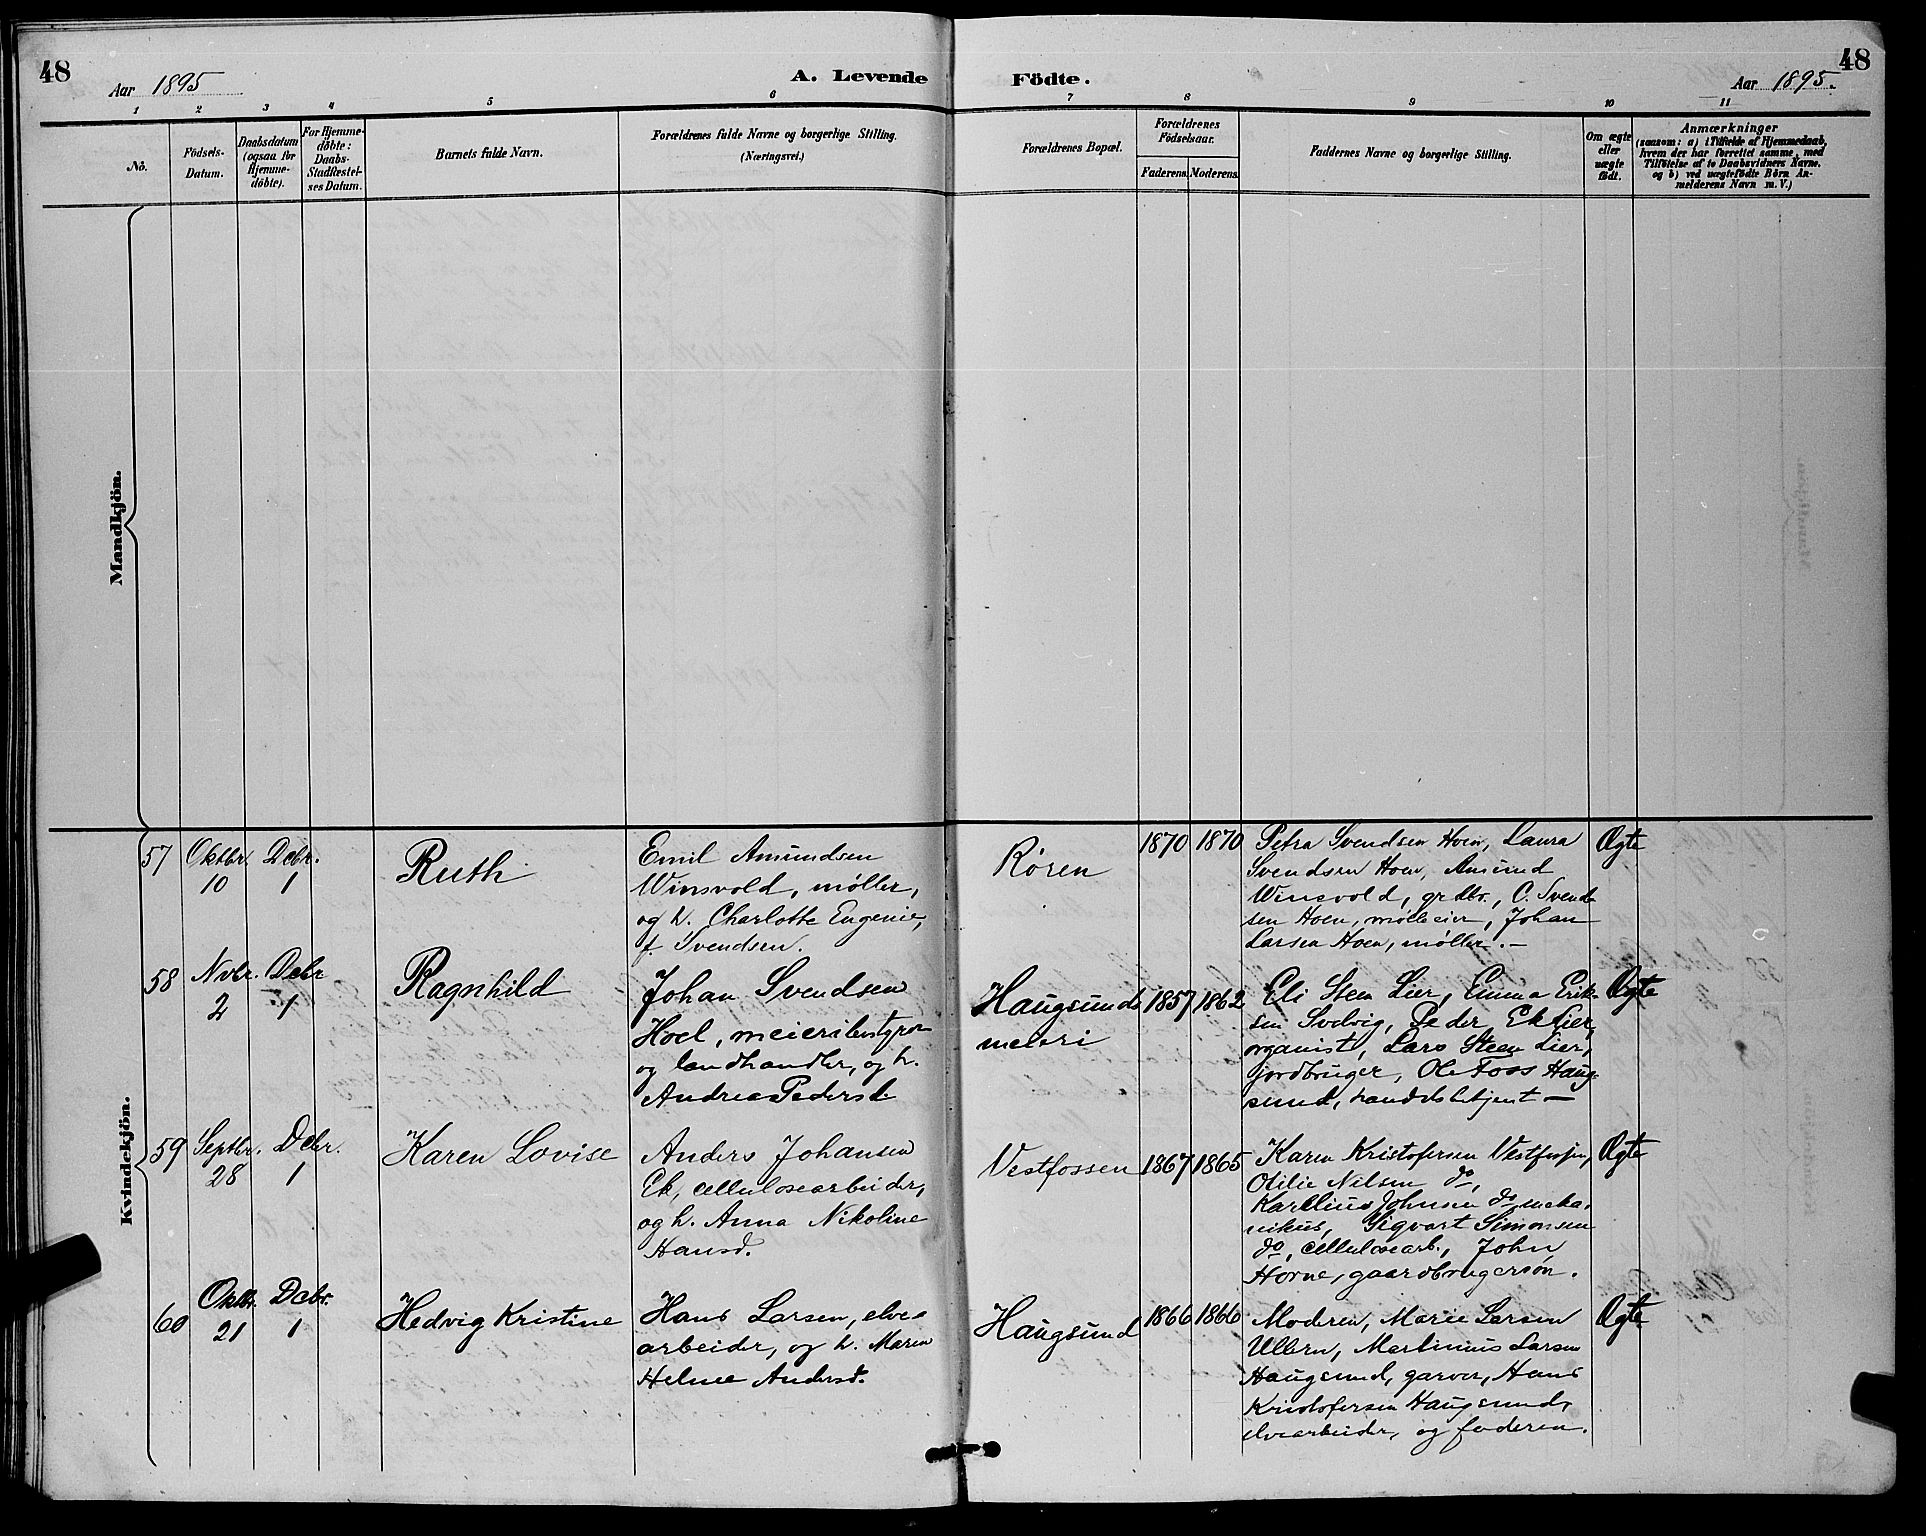 48
Aar 1895
A. Levende
Födte.
Aar 1895.
48
1 2 3 4 5 6 7 8 9 10 11
No.
Födsels-
Datum.
Daabsdatum
(ogsaa for
Hjemme-
döbte).
For Hjemme-
döbte:
Daabs-
Stadfæstel-
ses Datum.
Barnets fulde Navn.
Forældrenes fulde Navne og borgerlige Stilling.
(Næringsvei.)
Forældrenes Bopæl.
Forældrenes
Födselsaar.
Faderens.
Moderens.
Faddernes Navne og borgerlige Stilling.
Om ægte
eller
uægte
födt.
Anmærkninger
(saasom: a) i Tilfælde af Hjemmedaab,
hvem der har forrettet samme, med
Tilföielse af to Daabsvidners Navne.
og b) ved uægtefödte Börn An-
melderens Navn m. V.)
Mandkjön.
Kvindekjön.
57
Oktbr.
10
Dcbr.
1
Ruth
Emil Amundsen
Winsvold, møller,
og h. Charlotte Eugenie,
f. Svendsen.
Røren
1870
1870
Petra Svendsen Hoen, Laura
Svendsen Hoen, Amund
Winsvold, grdbr., C. Svend-
sen Hoen, mølleeier, Johan
Larsen Hoen, møller.—
Ægte
58
Nvbr.
2
Dcbr
1
Ragnhild
Johan Svendsen
Hoel, meieribestyrer
og landhandler, og h.
Andrea Pedersd.
Haugsunds
meieri
1857
1862
Eli Steen Lier, Emma Erik-
sen Svelvig, Peder Ek Lier,
organist, Lars Steen Lier,
jordbruger, Ole Foss Haug-
sund, handelsbetjent —
Ægte
59
Septbr.
28
Dcbr.
1
Karen Lovise
Anders Johansen
Ek, cellulosearbeider,
og h. Anna Nikoline
Hansd.
Vestfossen
1867
1865
Karen Kristofersen Vestfossen,
Otilie Nilsen do,
Karelius Johnsen do, meka-
nikus, Sigvart Simonsen
do, cellulosearb., John
Horne, gaardbrugersøn.
Ægte
60
Oktbr.
21
Dcbr.
1
Hedvig Kristine
Hans Larsen, elve-
arbeider, og h. Maren
Helene Andersd.
Haugsund
1866
1866
Moderen, Marie Larsen
Ullern, Martinius Larsen
Haugsund, garver, Hans
Kristofersen Haugsund,
elvearbeider, og faderen.
Ægte